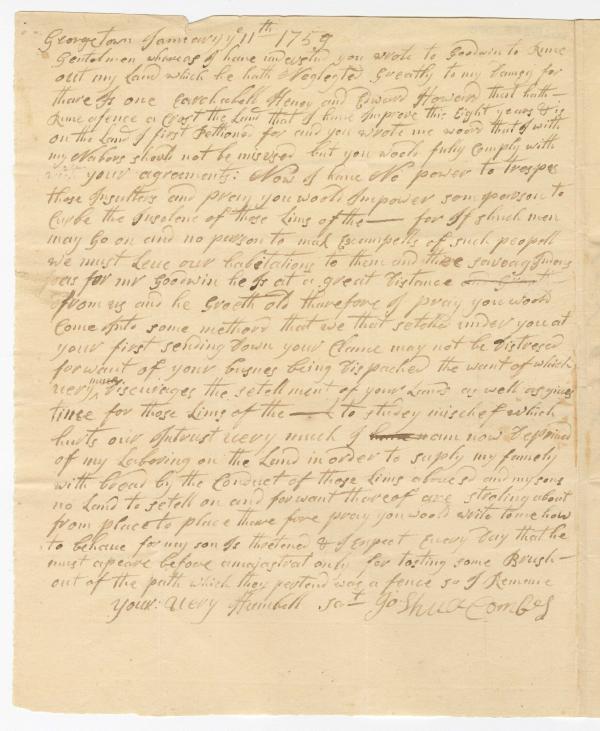 Georgetown January ye 11th 1759
Gentelmen whareas I have understud you wrote to Goodwin to Rune
out my Land which he hath Neglegted Greatly to my Damag for
thare Is one Henery and Edward Howard that hath
Rune afence a Crost the Land that I have Improve this Eight years & is
on the Land I first Petioned for and you wrote me word that I with
my Nabors should not be misused but you woold fully Comply with
your agreements: Now I have No power to trespas
those Insulters and pray you woold Impower som parson to
Curbe the Insolenc of those Lims of the — for If shuch men
may Go on and no parson to mak Exampells of such peopell
we must Leve our habitations to them and
as for mr Goodwin he Is at a great Distance
from us and he Groeth old tharefore I pray you woold
Come Into some method that we that seteled under you at
your first sending Down your Clame may not be Distresed
for want of your busnes being Dispached the want of which
very much Discurages the setellment of your Lands as well as gives
time for those Lims of the — to study mischef which
hurts our Intrust very much I am now Deprived
of my Laboring on the Land in order to supply my famely
with bread by the Conduct of those Lims above sd and my sons
no Land to setell on and for want thareof are stroling about
from place to place thare fore pray you woold write to me how
to behave for my son Is thretened & I Expect Every Day that he
must apeare before amajastrat only for tosting some Brush
out of the path which they pertend was a fence so I Remane
your: very Humbell sart Joshua Combes